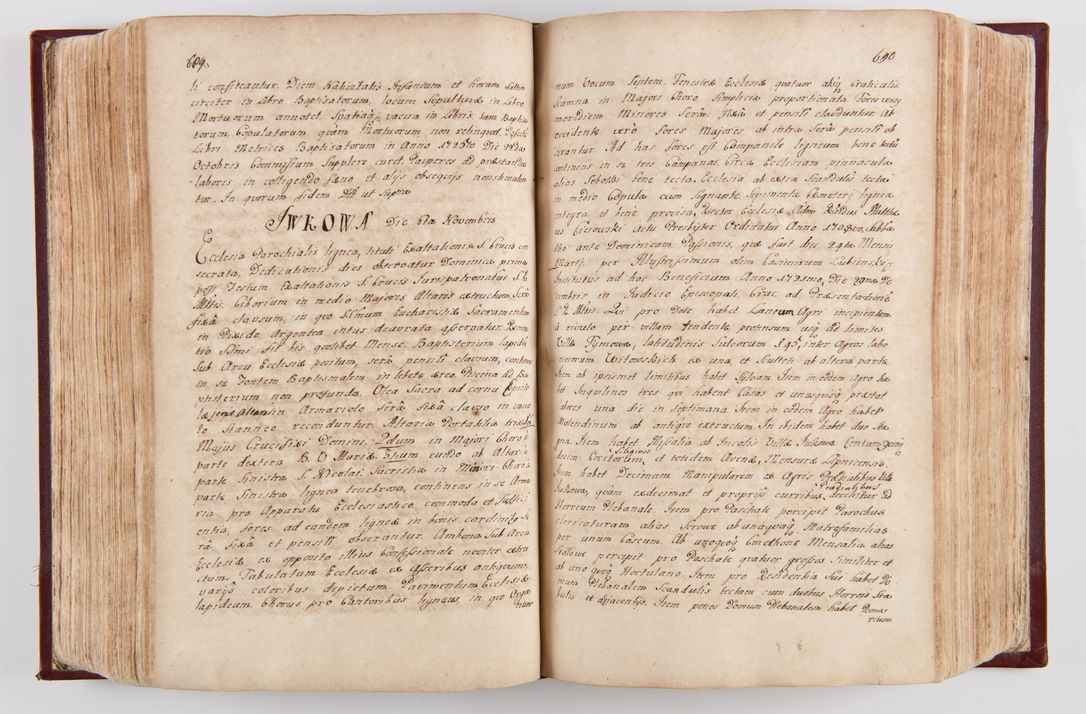 689.
ti confiteantur. Diem Nativitatis Infantum et horam saltem
circiter in Libro Baptisatorum, locum Sepulturæ in Libro
Mortuorum annotet. Spatia vacua in Libris tam Baptisa
torum, Copulatorum, quam Mortuorum non relinquat. Defectū
Libri Metrices Baptisatorum in Anno 1725to Die 28va
Octobris Commissum Supplere curet. Pauperes ad præstandos
labores in colligendo fæno et alijs obsequijs non stimulen
tur. In quorum fidem ut Supra
IWKOWA Die 6ta Novembris
Ecclesia Parochialis lignea, tituli Exaltationis S. Crucis con
secrata, Dedicationis dies observatur Dominica prima
post Festum Exaltationis S. Crucis Jurispatronatus S. R.
Mttis. Ciborium in medio Majoris Altaris extructum, Serâ
fixâ clausum, in quo Sstmum Eucharistiæ Sacramentum
in Pixide Argentea intus deaurata asservatur. Renova
tio Sstmi fit bis quolibet Mense. Baptisterium lapideū
Sub Arcu Ecclesiæ positum, serâ pensili clausum, continens
in se Fontem Baptismalem in lebete æreo. Piscina ad Ba
ptisterium non profunda. Olea Sacra ad cornu Episto
læ Majoris Altaris in Armariolo Serâ fixâ clauso in vascu
lo Stanneo reconduntur. Altaria Portatilia tria. 1mū
Majus Crucifixi Domini. 2dum in Majori Choro à
parte dextera B. V. Mariæ. 3tium eundo ab Altari à
parte Sinistra S. Nicolai. Sacristia in Minori Choro à
parte Sinistra lignea tenebrosa, continens in se Arma
ria pro Apparatu Ecclesiastico commoda et Suffici
entia, fores ad eandem ligneæ in bonis cardinibg Se
râ fixâ et pensili obserantur. Ambona Sub Arcu
Ecclesiæ, ex opposito illius Confessionale noviter extru
ctum. Tabulatum Ecclesiæ ex asseribus antiquum,
varijs coloribus depictum. Pavimentum Ecclesiæ
lapideum. Chorus pro Cantoribus ligneus, in quo Orga
num
690
num Vocum Septem. Fenestræ Ecclesiæ quatuor absq Craticulis.
Scamna in Majori Choro Simplicia proportionata. Fores versg
meridiem Minores Serâ fixâ et pensili clauduntur. Ab
occidente verò fores Majores ab intra Serâ pensili ob
serantur. Ad has fores est Campanile ligneum bene tectū
continens in se tres Campanas. Circa Ecclesiam pinnacula
alias Soboty bene tecta. Ecclesia ab extra Scandulis tecta
in medio Cupula cum Signante. Sepimenta Cæmeterij lignea
integra et bene provisa. Rector Ecclesiæ Adm Rndus Matthæ
us Cieiowski Actu Presbyter Ordinatur Anno 1708vo, Sabba
tho ante Dominicam Passionis, quæ fuit dies 24ta Mensis
Martij, per Illustrissimum olim Casimirum Łubienski,
Institutus ad hoc Beneficium Anno 1721mo, Die 29na De
cembris in Judicio Episcopali Crac. ad Præsentationē
S. R. Mttis. Qui pro Dote habet Laneum Agri incipientem
à rivulo per villam tendente protensum usq ad limites
Villæ Tymowa, latitudinis Sulcorum 145, inter Agros labo
riosorum Witowskich ex una, et Sculteti ab altera parte.
Item ab ipsismet limitibus habet Sylvam. Item in eodem Agro ha
bet Inquilinos tres qui habent Casas et unusquisq præstat
labores una die in septimana. Item in eodem Agro habet
Molendinum ab antiquo extructum. Ibidem habet duo Sta
gna. Item habet Missalia ab Incolis Villæ Iwkowa Centum quin
decim Coretorum Siliginis et totidem Avenæ, Mensuræ Lipnicensis.
Item habet Decimam Manipularem ex Agris Prædialibus Villæ
Iwkowa, quam exdecimat et proprijs curribus Prædialibus devehitur ad
Horreum Plebanale. Item pro Paschate percipit Parochus
Clericaturam alias Serowe ab unaquaq Matrefamilias
per unum Caseum. Ab unoquoq Cmethone Mensalia alias
Stołowe percipit pro Paschate quatuor grossos Similiter et
ab uno quoq Hortulano. Item pro Residentia Sui habet Do
mum Plebanalem Scandulis tectam cum duobus Horreis Sta
bulis et adjacentijs. Item penes Domum Plebanalem habet Poma
rium